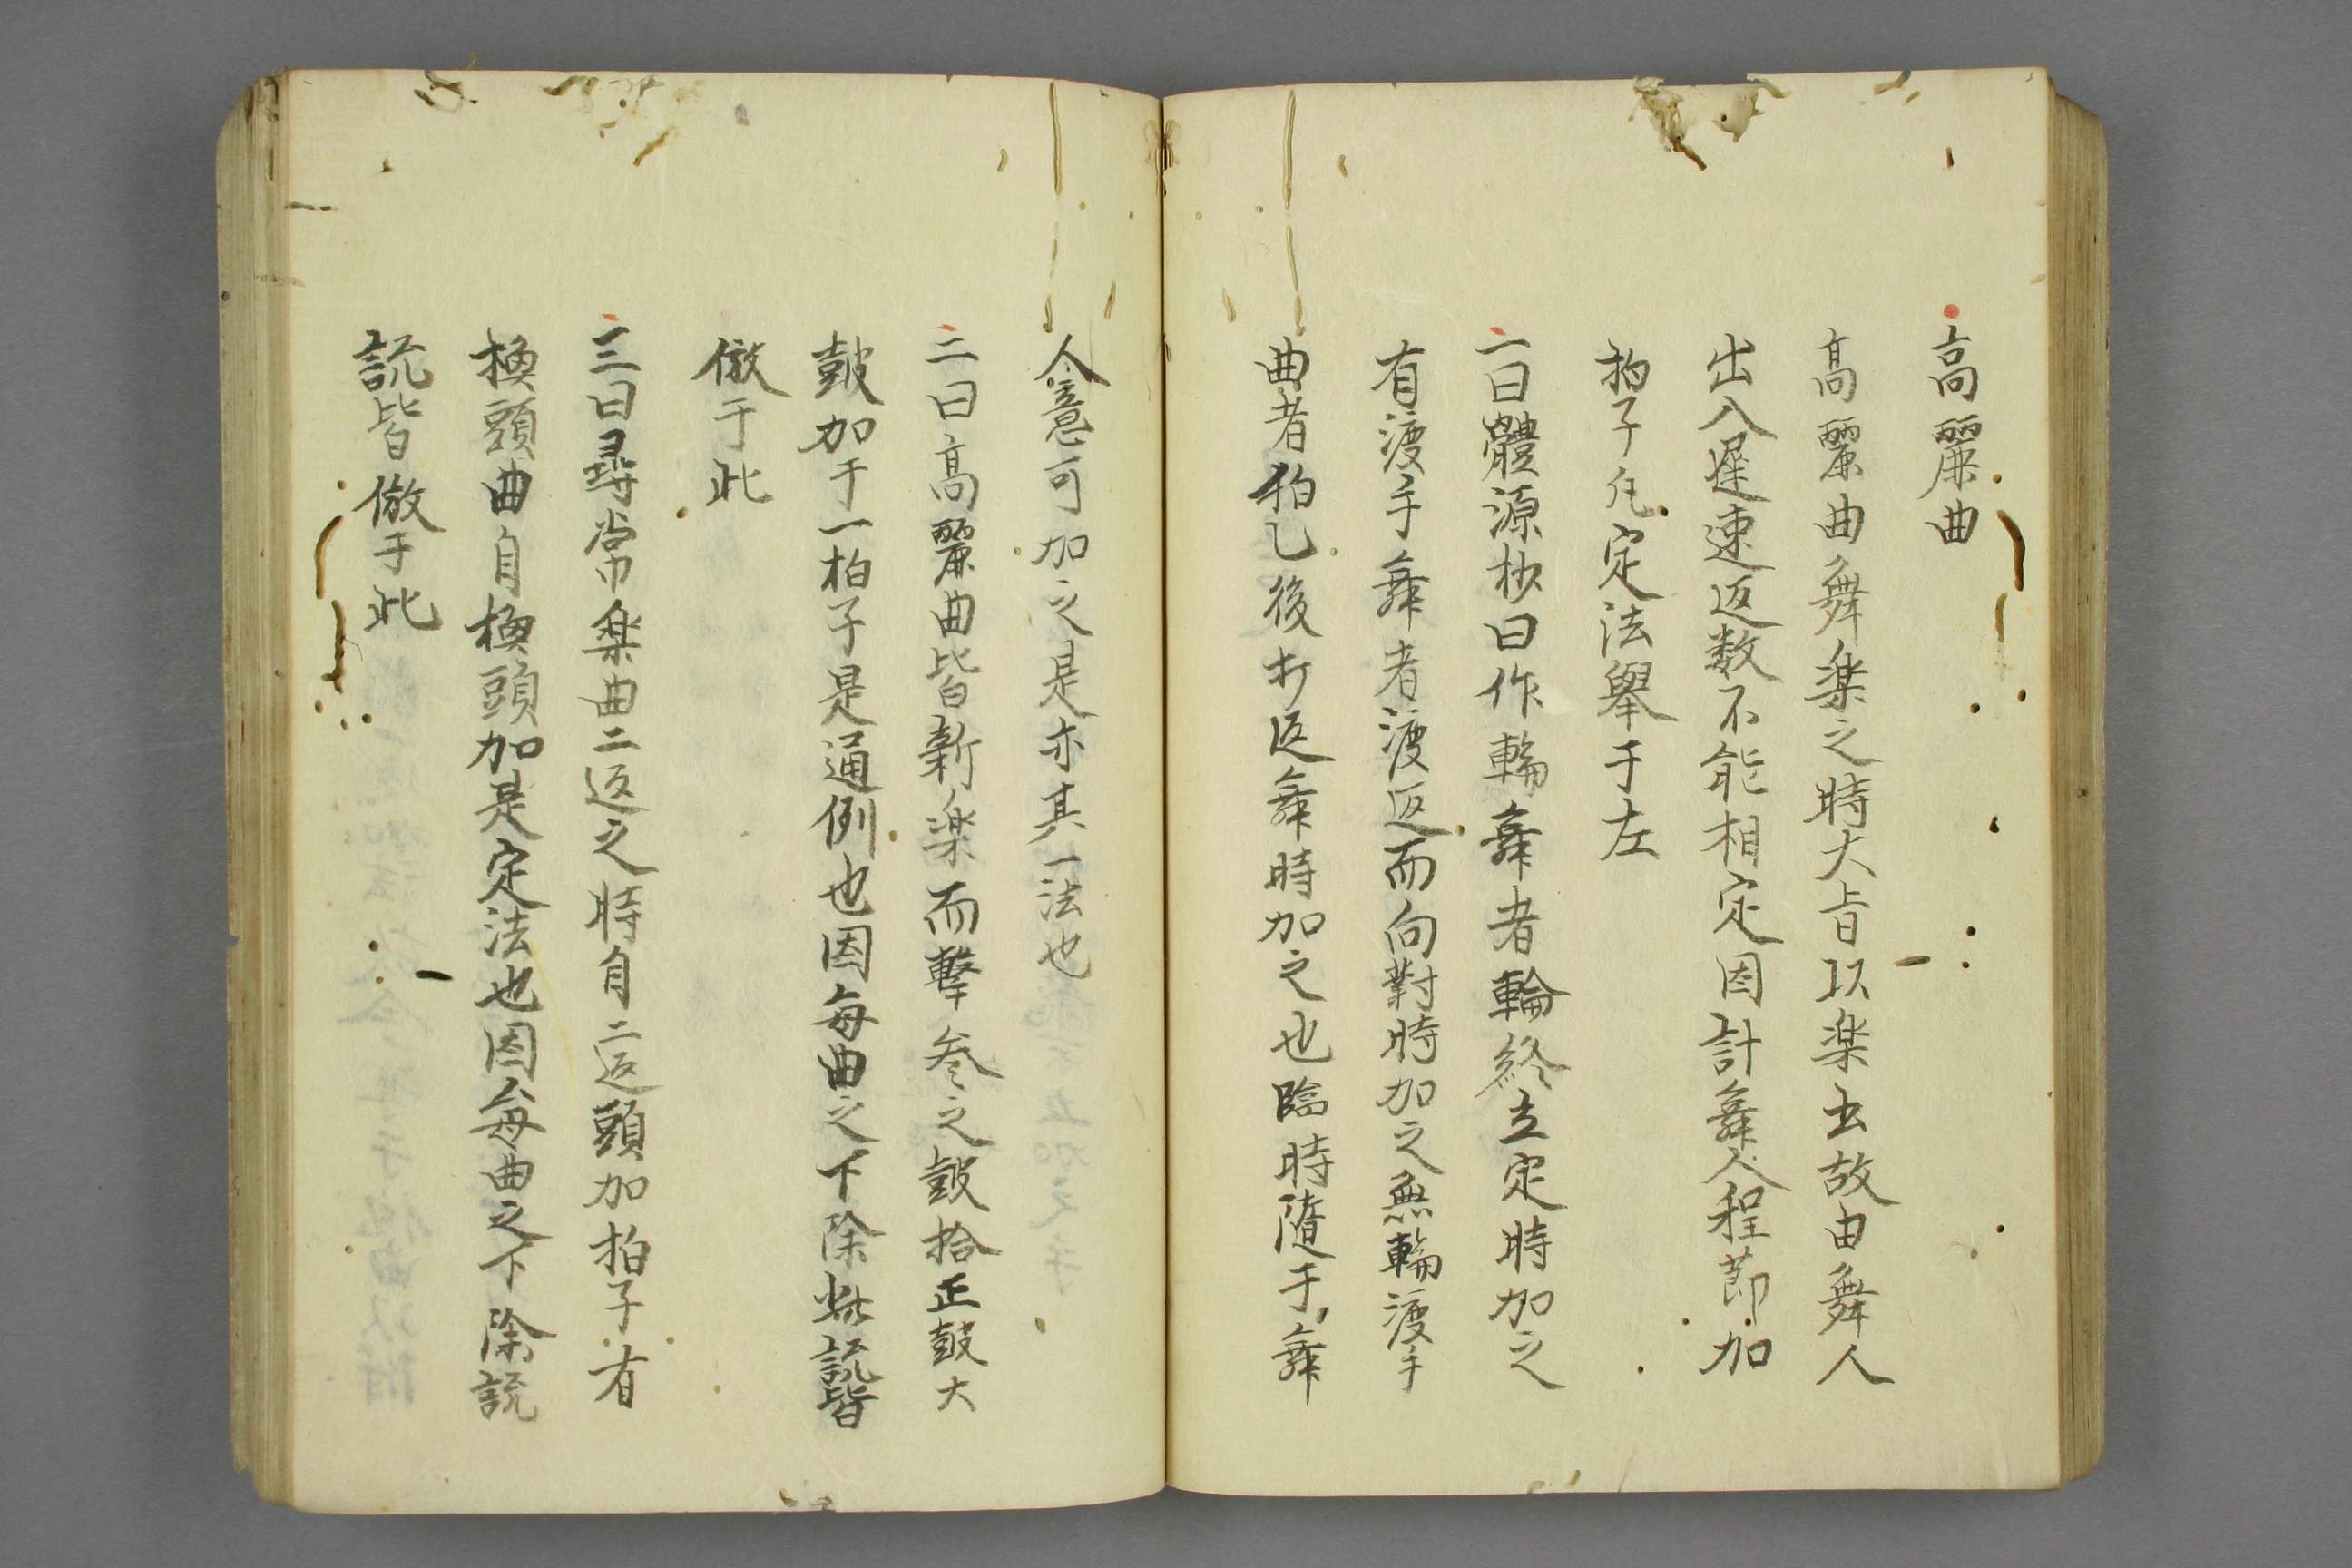 高麗曲
高麗曲舞楽之時大旨以楽去故由舞人
出入遅速返数不能相定因計舞人程節加
拍子凡定法舉于左
一曰體源抄曰作輪舞者輪終立定時加之
有渡手舞者渡返而向對時加之無輪渡手
曲者拍乚後打返舞時加之也臨時隨于舞
人意可加之是亦其一法也
二曰高麗曲皆新楽而擊叁之鼓拾正鼓大
鼓加于一拍子是通例也因每曲之下除此說皆
倣于此
三曰尋常楽曲二返之時自二返頭加拍子有
換頭曲自換頭加是定法也因每曲之下除說
說皆倣于此